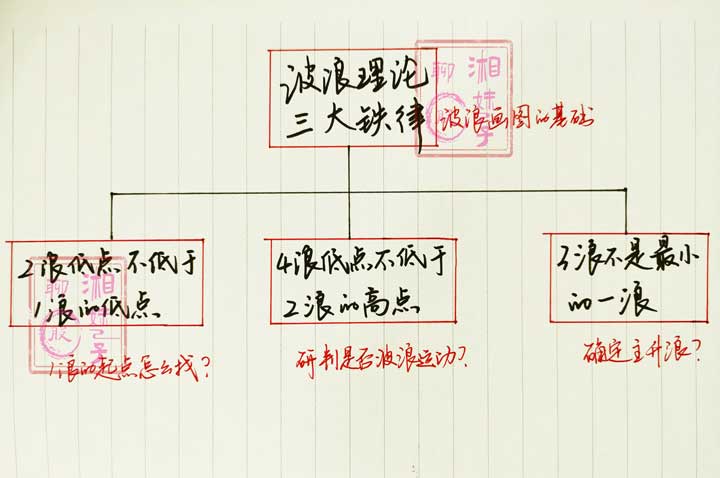 波浪理论
三大铁律
波浪画图的基础
2浪低点不低于
1浪的低点
1浪的起点怎么找?
4浪低点不低于
2浪的高点
研判是否波浪运动?
3浪不是最小
的一浪
确定主升浪?
湘妹子
聊股
湘妹子
聊股